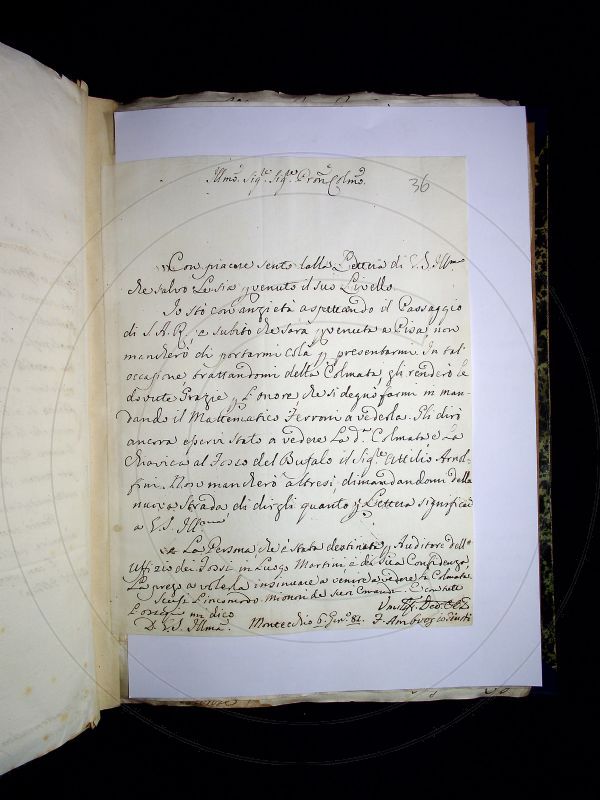 Illmo. Sigre. Sigre. Pron. Colmo.
36
Con piacere sento dalla Lettera di V.S. Illma
che salvo Le sia pervenuto il suo Livello.
Io stò con anzietà aspettando il Passaggio
di S.A.R., e subito che sarà pervenuta a Pisa non
mancherò di portarmi colà per presentarmi. In tal
occasione trattandomi della Colmata gli renderò le
dovute Grazie per L'onore, che si degnò farmi in man-
dando il Mattematico Ferroni a vederla. Gli dirò
ancora esservi stato a vedere La da. Colmata, e La
Chiavica al Fosco del Bufalo il Sigre. Attilio Arnol-
fini. Non mancherò altresì, dimandandomi della
nuova strada di dirgli quanto per Lettera significai
a V.S. Illma
La Persona che è stata destinata per Auditore dell'
Uffizio dei Fossi in Luogo Martini è di sua Confidenza
La prego a volerla insinuare a venire a vedere la Colmata
Scusi L'incomodo mi onori dei suoi Comandi. E con tutto
mi dico
D. V.S. Illma. Montecchio 6. Gen. 82. F. Ambrogio Giusti